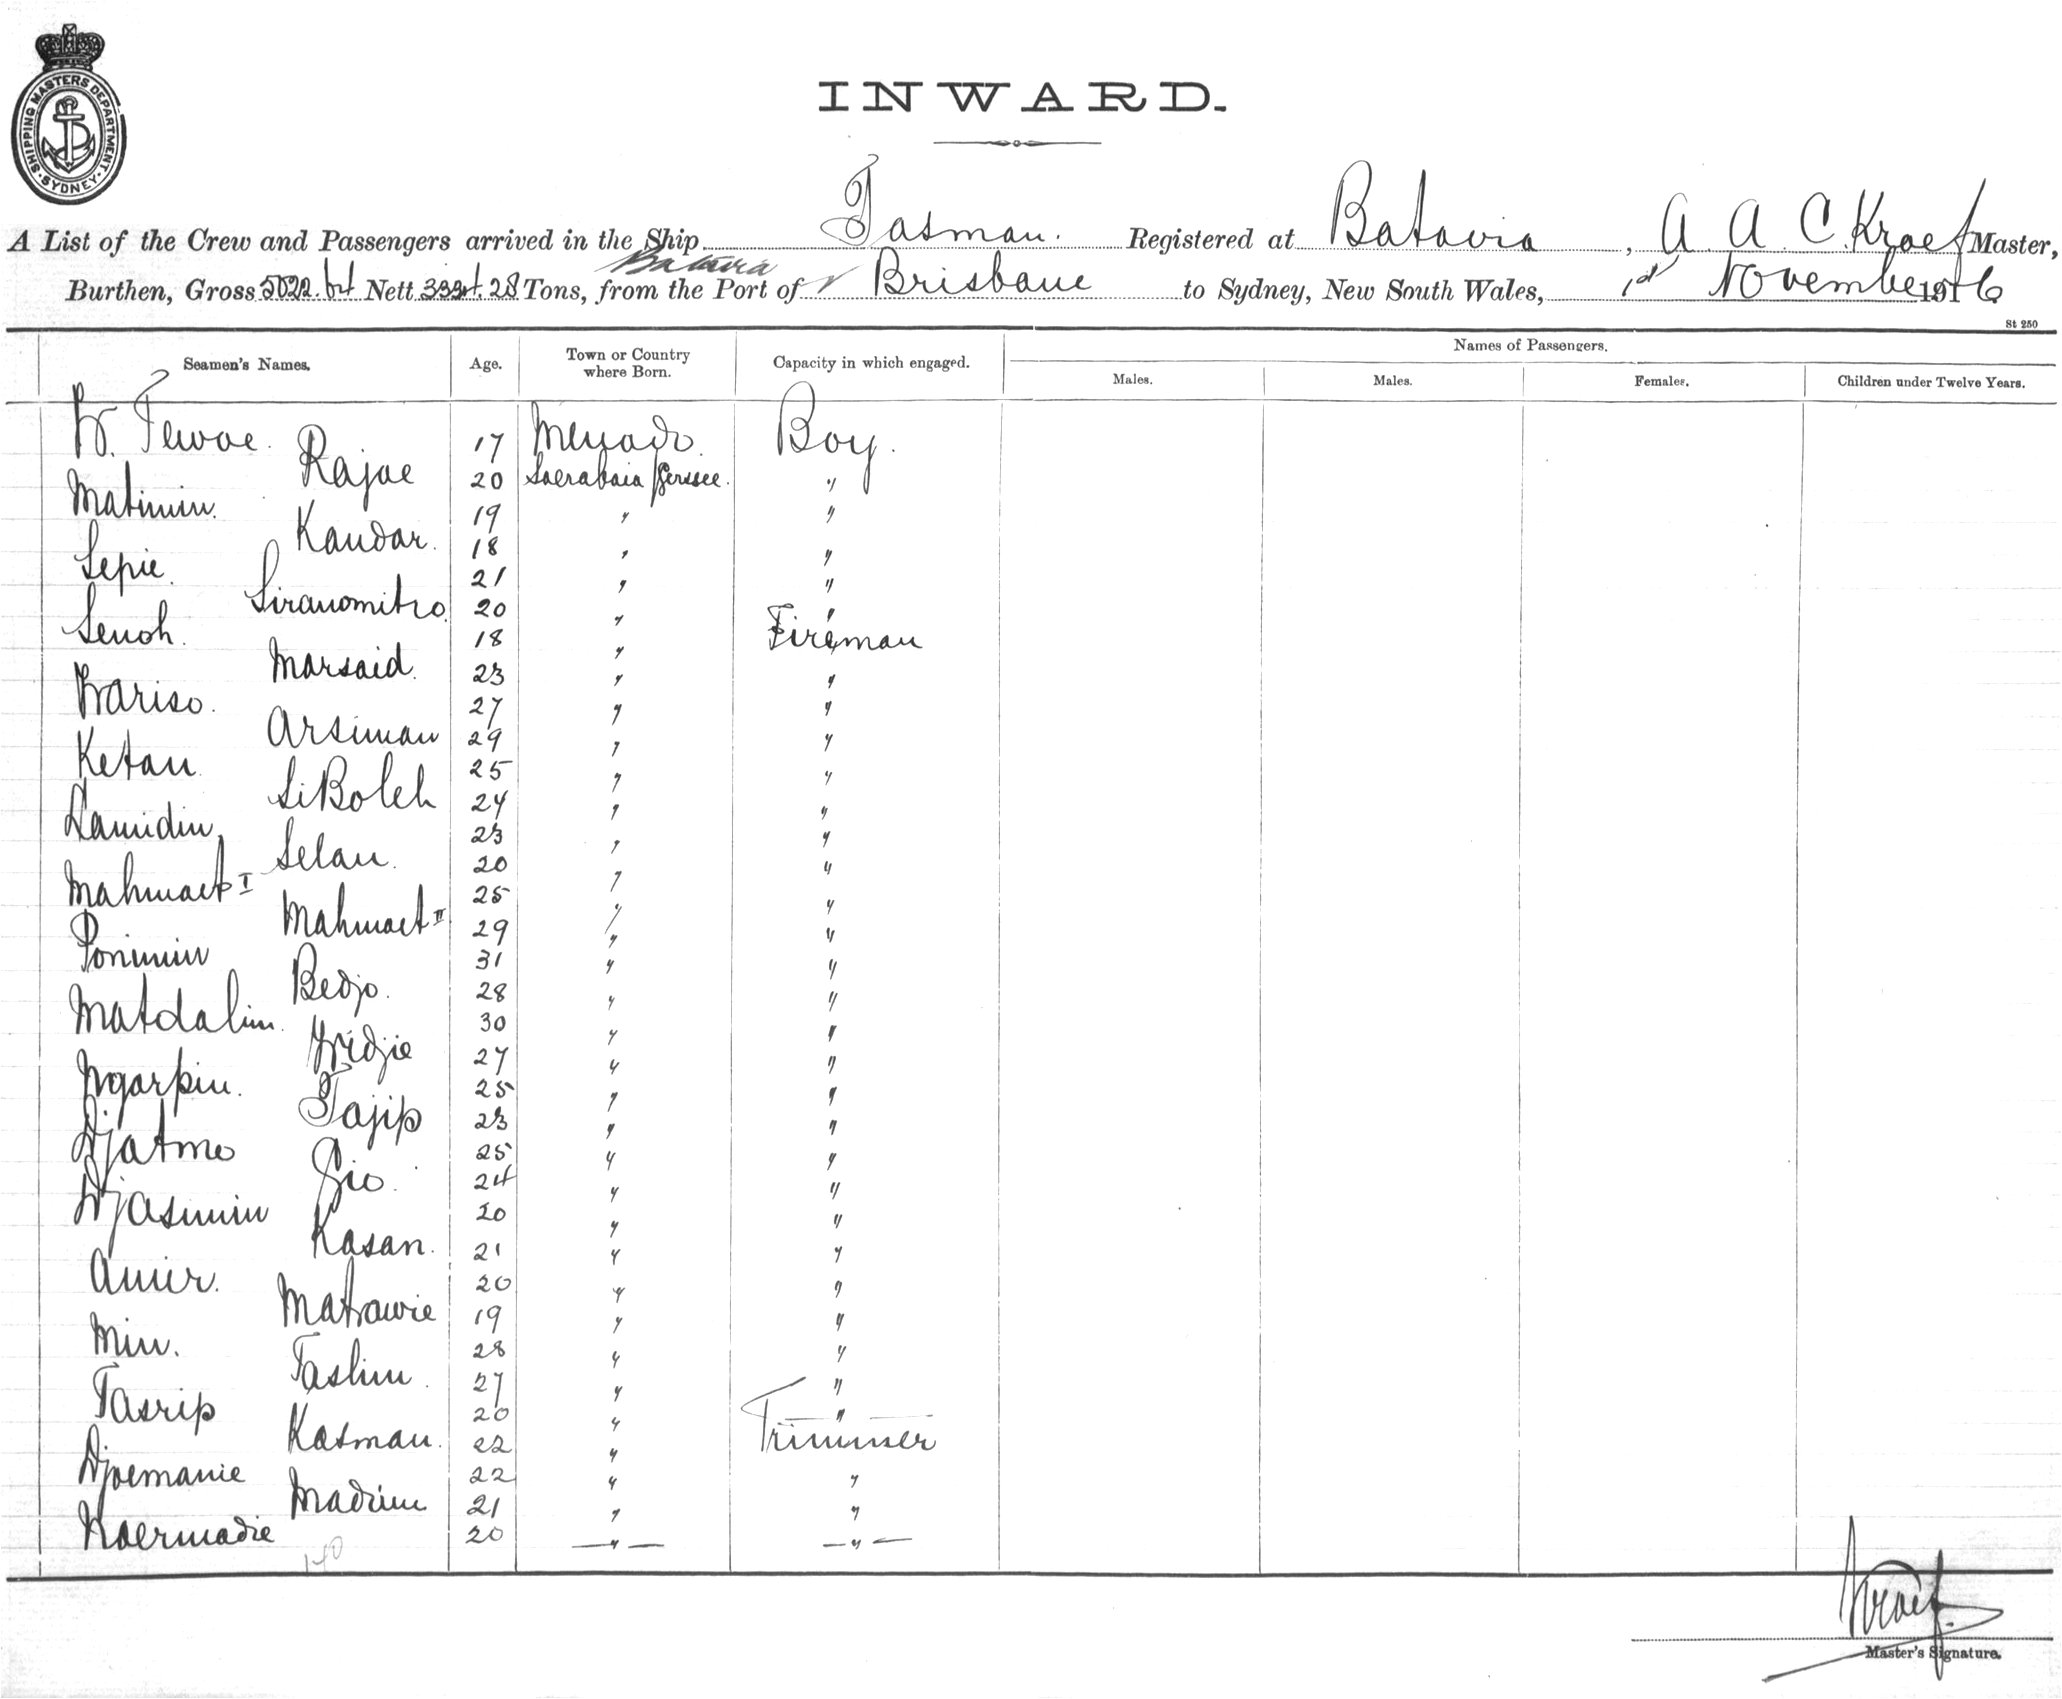 SHIPPING MASTERS DEPARTMENT. SYDNEY.
INWARD.
A List of the Crew and Passengers arrived in the Ship Tasman. Registered at Batavia, A. A. C. Kroef Master,
Batavia
Burthen, Gross 5022. Nett Tons, from the Port of Brisbane to Sydney, New South Wales, 1st November 1916
St 250
Seamen's Names. Age. Town or Country where Born. Capacity in which engaged. Names of Passengers.
Males. Males. Females. Children under Twelve Years.
W. Tewoe. 17 Menado Boy.
Rajae 20 Soerabaia/Gersee. "
Matimin. 19 " "
Kandar. 18 " "
Sepie. 21 " "
Siranomitro. 20 " "
Senoh. 18 " Fireman
Marsaid. 23 " "
Wariso. 27 " "
Arsiman 29 " "
Ketan 25 " "
SiBoleh 24 " "
Lamidin, 23 " "
Selan. 20 " "
Mahmaet I 25 " "
Mahmaet II 29 " "
Ponimin 31 " "
Bedjo. 28 " "
Matdalim. 30 " "
27 " "
Ngarpin. 25 " "
Tajip 23 " "
Djatmo 25 " "
Gio. 24 " "
Djasimin 20 " "
Kasan. 21 " "
Amir. 20 " "
Matrawie 19 " "
Min. 28 " "
Taslim. 27 " "
Tasrip 20 " "
Kasman. 22 " Trimmer
Djoemanie 22 " "
Madrim 21 " "
Koermadie 20 " "
140
Kroef.
Master's Signature.